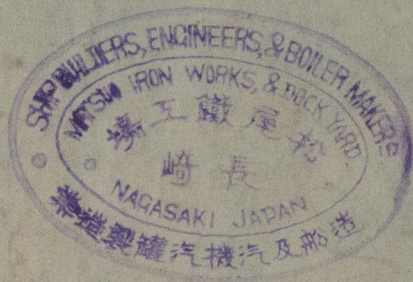 SHIP BUILDERS, ENGINEERS, & BOILER MAKERS
MATSUO IRON WORKS, & DOCK YARD.
松尾鐵工場
長崎
NAGASAKI JAPAN
造船及汽機汽罐製造業